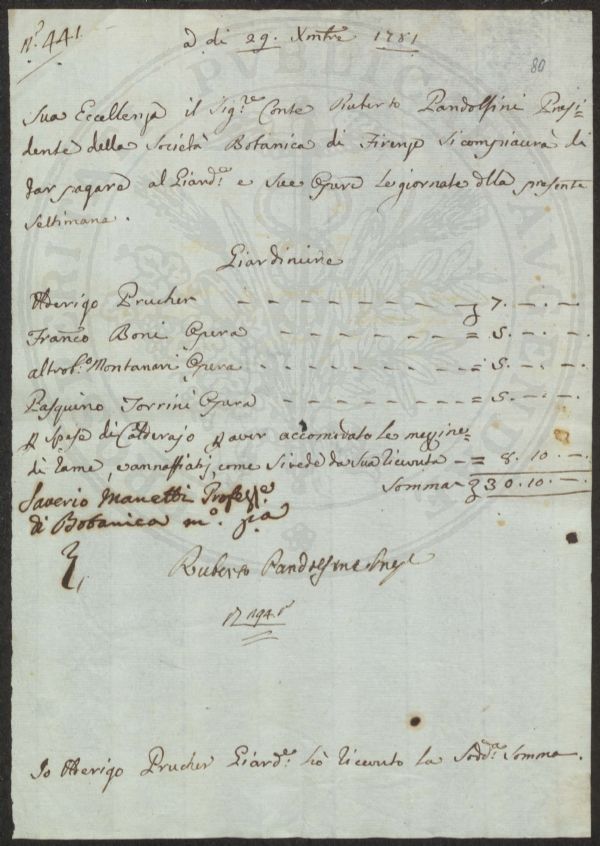 N.° 441.
a di 29. Xmbre 1781
80
Sua Eccellenza il Sig.re Conte Ruberto Pandolfini Presi-
dente della Società Botanica di Firenze si compiacerà di
far pagare al Giard.e e sue Opere le giornate della presente
Settimana.
Giardiniere
Oderigo Prucher - - - - - - - - 7. -. -.
Franco Boni Opera - - - - - - - = 5. -. -.
altro b.° Montanari Opera - - - - - - - = 5. -. -.
Pasquino Torrini Opera - - - - - - - = 5. -. -.
p spese di Calderajo p aver accomodato le mezzine
di rame, e annaffiatoj, come si vede da sua ricevuta - = 8. 10. -.
Somma 30. 10. -.
Saverio Manetti Profess.e
di Botanica m.° p.a
Ruberto Pandolfini Pres.e
194
Io Oderigo Prucher Giard.e hò ricevuto la Sodd.a Somma.
PUBBLICA
AUGENDAE